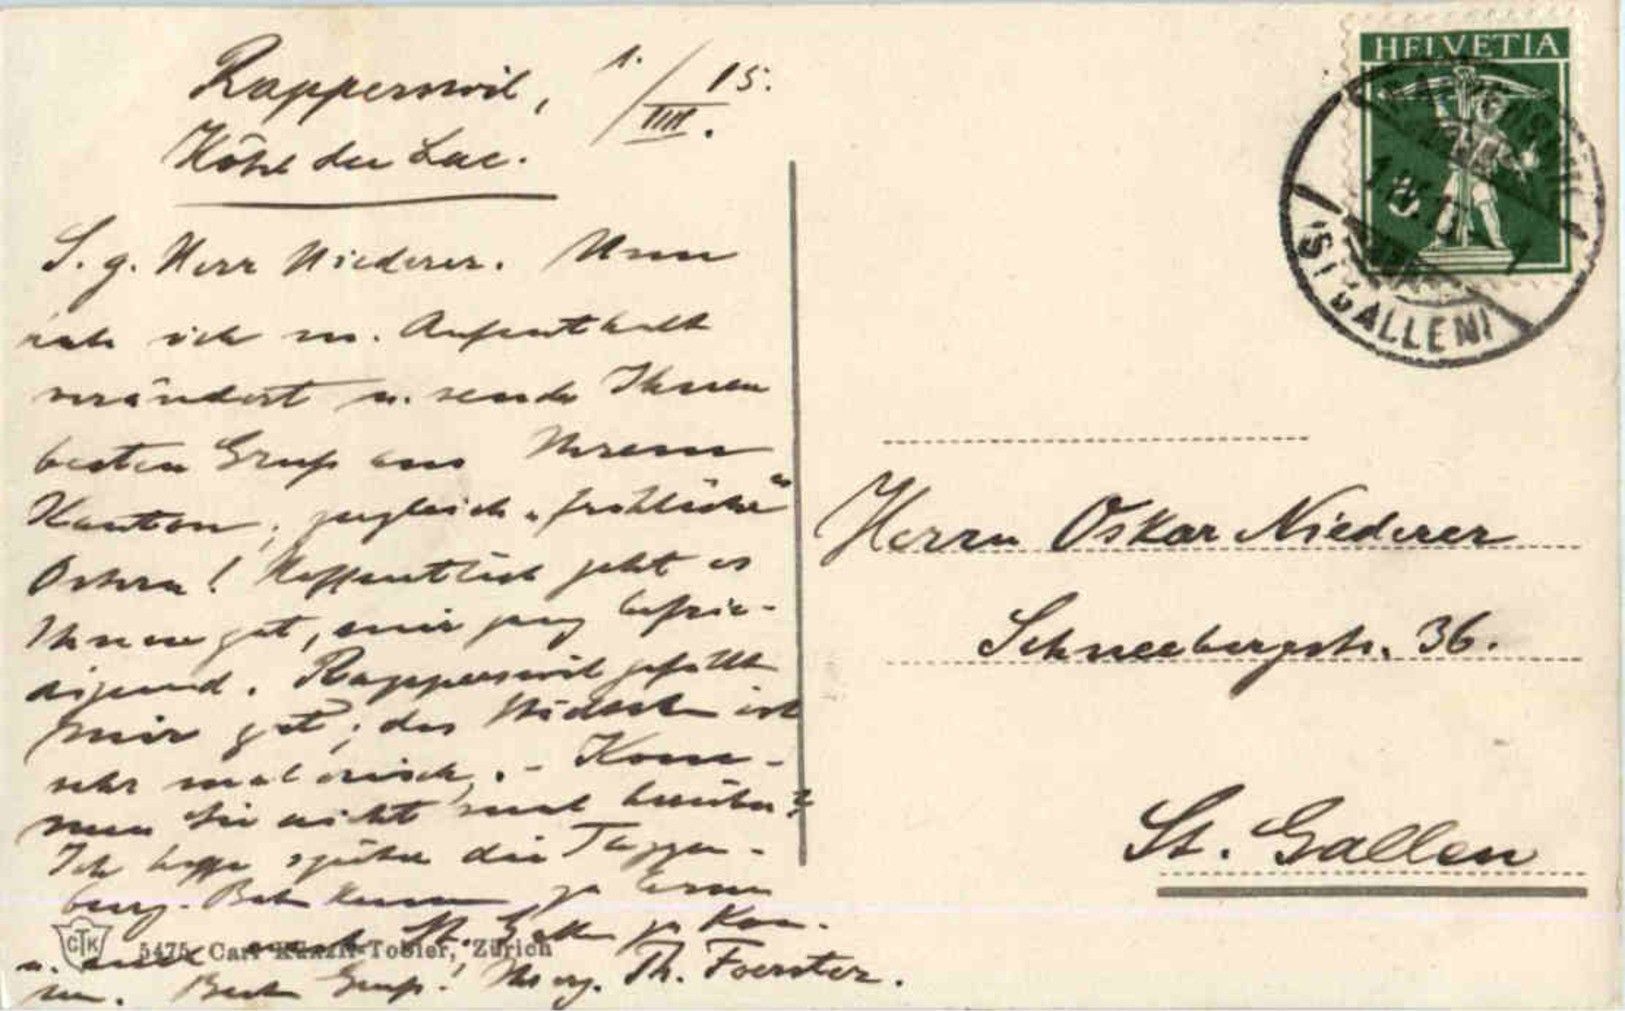 Rapperswil, 1./IIII. 15.
Hôtel du Lac.
S. g. Herr Niederer. Nun
hab ich m. Aufenthalt
verändert u. sende Ihnen
besten Gruß aus Ihrem
Kanton, zugleich „fröhliche“
Ostern! Hoffentlich geht es
Ihnen gut, mir ganz befrie-
digend. Rapperswil gefällt
mir gut; das Städtchen ist
sehr malerisch. - Kom-
men Sie nicht mal herüber?
Ich hoffe später die Toggen-
burg-Bahn kennen zu lernen
u. auch nach St. Gallen zu kom-
men. Besten Gruß! Ihr erg. Th. Foerster.
CTK 5475 Carl Künzli-Tobler, Zürich
HELVETIA
(ST. GALLEN)
Herrn Oskar Niederer
Schneebergstr. 36.
St. Gallen